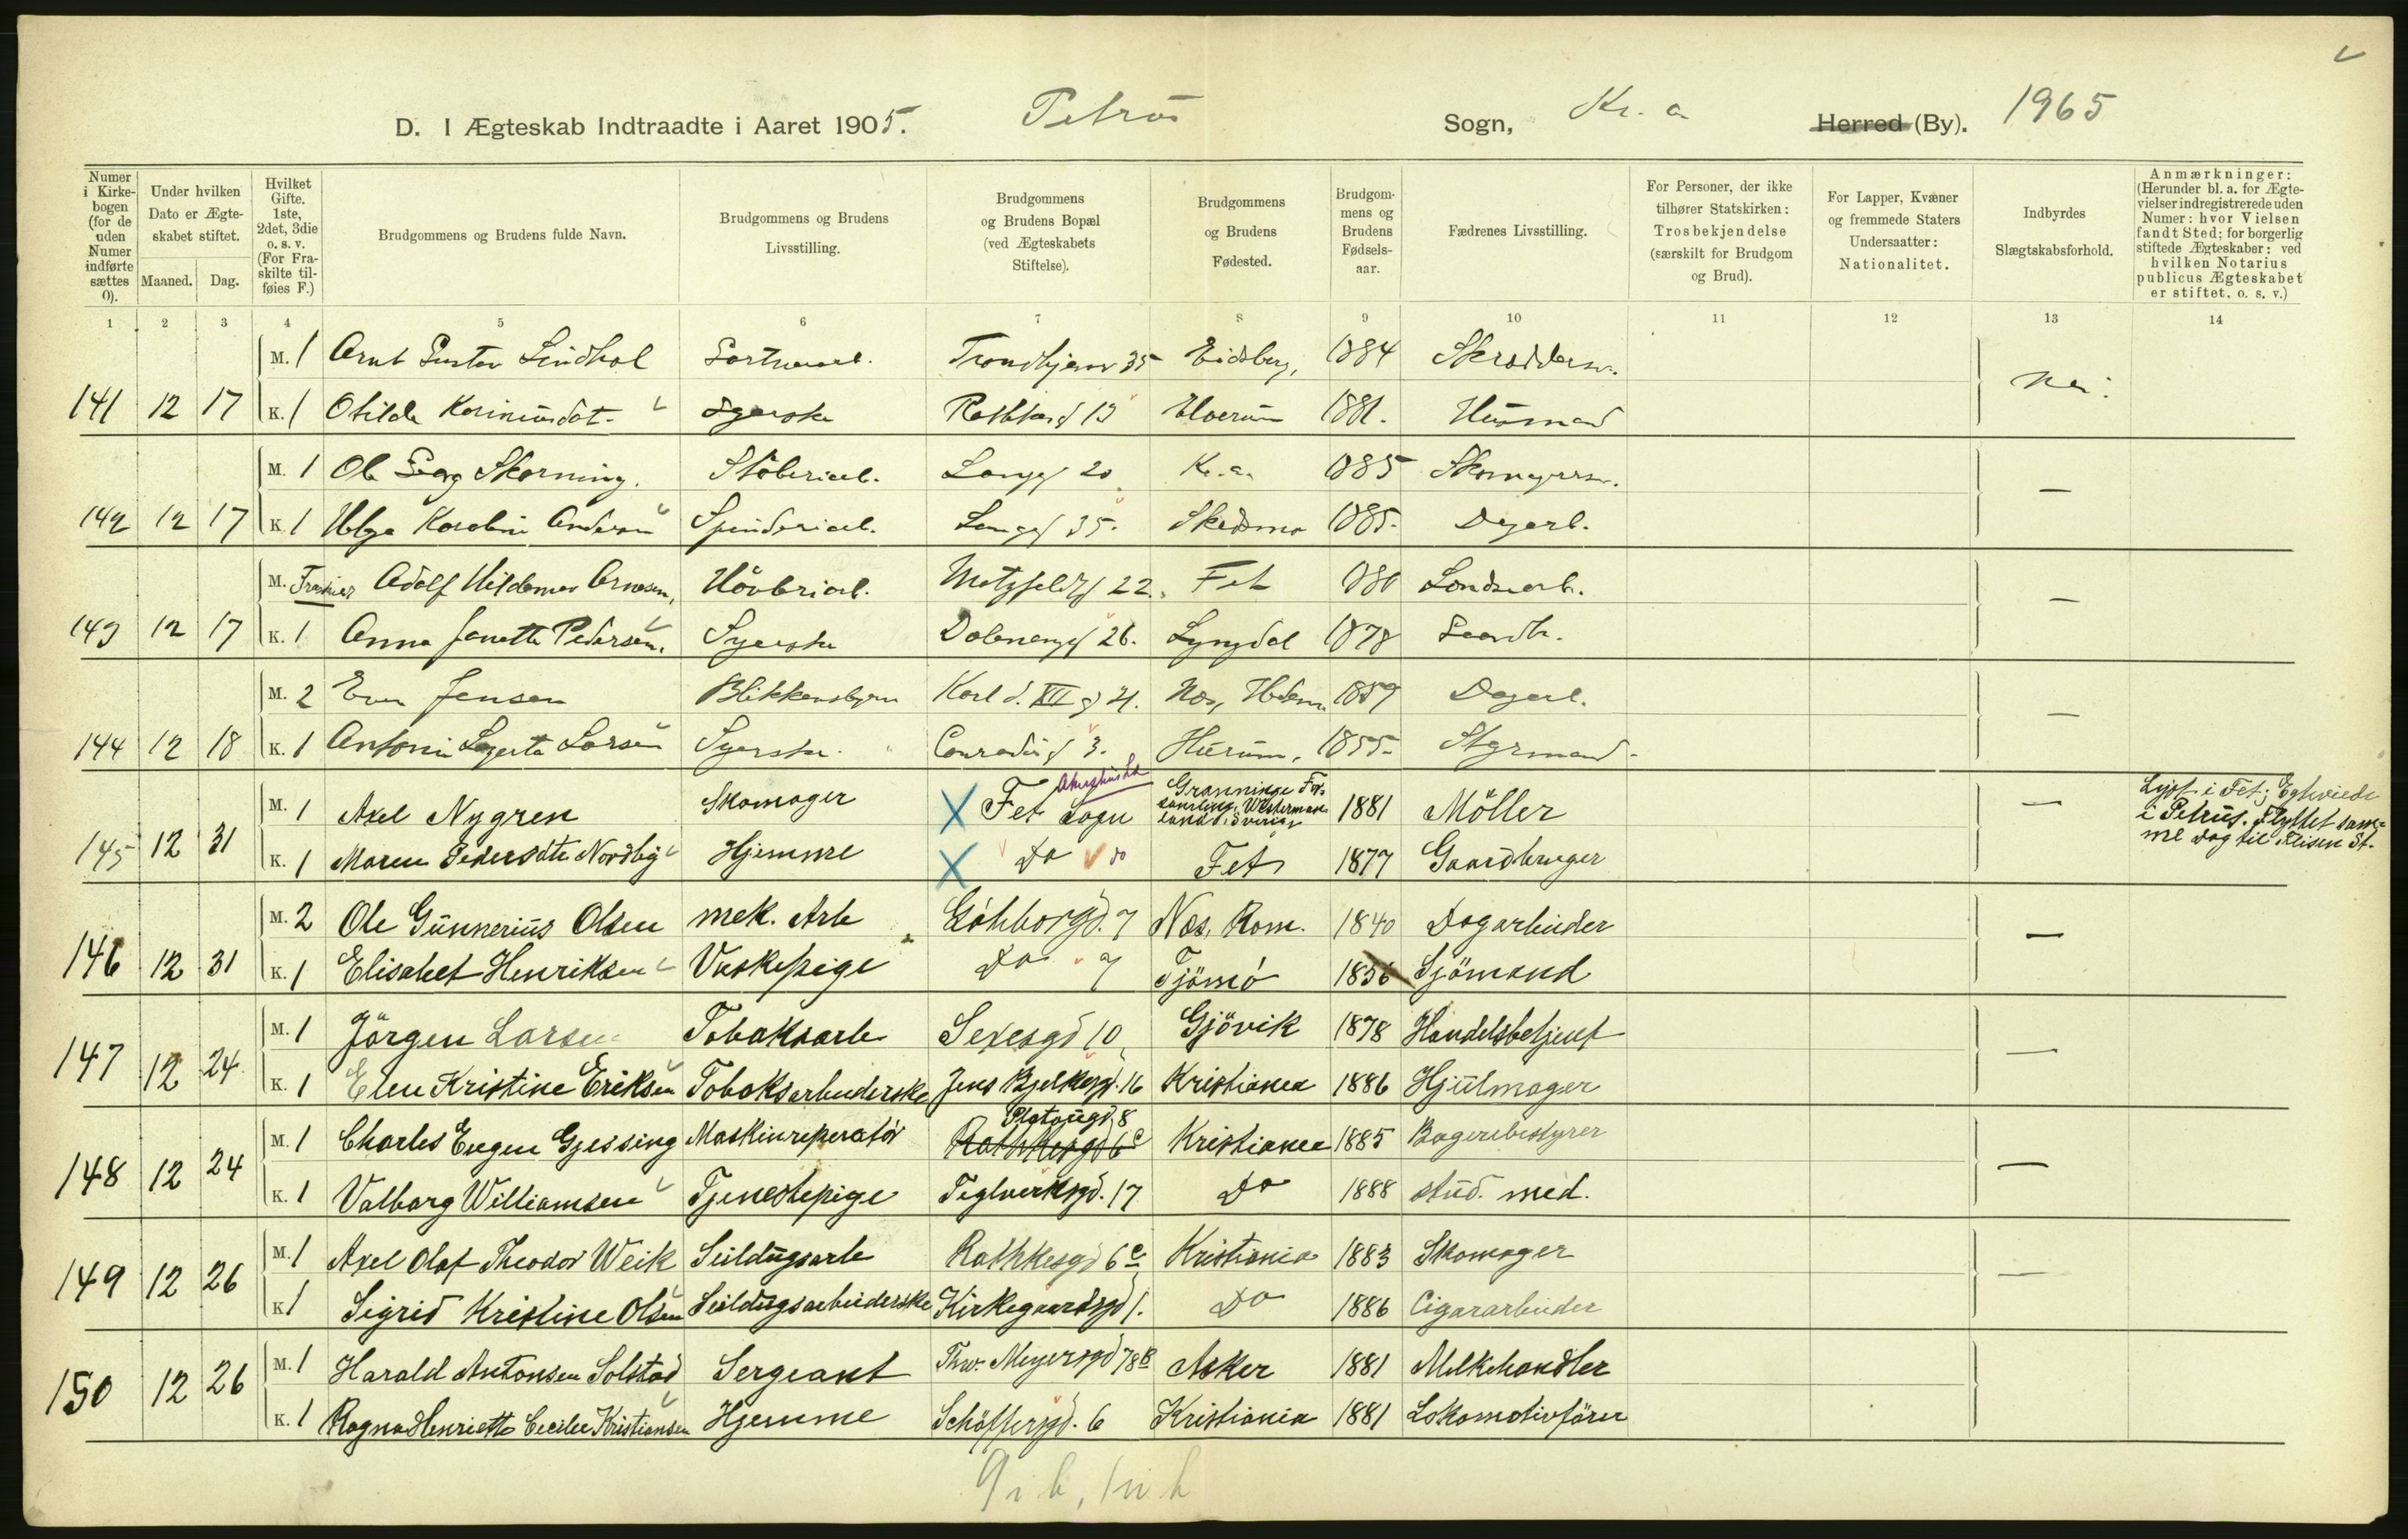 D. I Ægteskab Indtraadte i Aaret 1905. Petrus Sogn, Kr. a Herred (By). 1965
Numer i Kirkebogen (for de uden Numer indførte sættes 0). Under hvilken Dato er Ægteskabet stiftet. Maaned. Dag. Hvilket Gifte. 1ste, 2det, 3die o. s. v. (For Fraskilte tilføies F.) Brudgommens og Brudens fulde Navn. Brudgommens og Brudens Livsstilling. Brudgommens og Brudens Bopæl (ved Ægteskabets Stiftelse). Brudgommens og Brudens Fødested. Brudgommens og Brudens Fødselsaar. Fædrenes Livsstilling. For Personer, der ikke tilhører Statskirken: Trosbekjendelse (særskilt for Brudgom og Brud). For Lapper, Kvæner og fremmede Staters Undersaatter: Nationalitet. Indbyrdes Slægtskabsforhold. Anmærkninger: (Herunder bl. a. for Ægtevielser indregistrerede uden Numer: hvor Vielsen fandt Sted; for borgerlig stiftede Ægteskaber: ved hvilken Notarius publicus Ægteskabet er stiftet, o. s. v.)
1 2 3 4 5 6 7 8 9 10 11 12 13 14
M. 1 Arnt Gustav Lindhol Trondhjemsv 35 Eidsberg, 1884
141 12 17 K. 1 Otilde Syerske 13 Elverum 1881. Husmand nei.
M. 1 Ole Georg Skorning. Støberiarb. Langg 20 Kr. a. 1885
142 12 17 K. 1 Helga Karoline Andersen Spinderiarb. Langg 35. Skedsmo 1885. Dagarb. —
M. Adolf Hildemar Arnesen, Høvleriarb. Metzfeldtsg 22. Fet
143 12 17 K. 1 Anna Janette Pedersen. Syerske Dalenengg 26. Lyngdal 1878 Gaardbr. —
M. 2 Even Jensen Karl d. XII g 21. Nes, Hedem. 1859 Dagarb.
144 12 18 K. 1 Antoni Larsen Syerske Conradisg 3. Hurum, 1855. Styrmand. —
M. 1 Axel Nygren Skomager X Fet Sogn Akershus 1881 Möller — Lyst i Fet; Egteviede
i Petrus. Flyttet sam-
145 12 31 K. 1 Maren Pedersdtr Nordby Hjemme X Do do Fet 1877 Gaardbruger me Dag til Flisen St.
M. 2 Ole Gunnerius Olsen mek. Arb Göteborgd. 7 Nes, Rom. 1840 Dagarbeider
146 12 31 K. 1 Elisabet Henriksen Vaskepige Do 7 Tjömö 1856 Sjömand —
M. 1 Jörgen Larsen Tobaksarb Sexesgd 10 Gjövik 1878 Handelsbetjent
147 12 24 K. 1 Elen Kristine Eriksen Tobaksarbeiderske Jens Bjelkesgd. 16 Kristiania 1886 Hjulmager —
M. 1 Charles Eugen Gjessing Maskinreperatör Platougd. 8 Rathkesgd 6c Kristiania 1885 Bageribestyrer
148 12 24 K. 1 Valborg Williamsen Tjenestepige Teglverksgd. 17 Do 1888 stud. med. —
M. 1 Axel Olaf Theodor Weik Seildugsarb Rathkesgd 6c Kristiania 1883 Skomager
149 12 26 K 1 Sigrid Kristine Olsen Seildugsarbeiderske Kirkegaardsgd 1. Do 1886 Cigararbeider —
M. 1 Harald Antonsen Solstad Sergeant Thv. Meyersgd 78B Asker 1881 Melkehandler
150 12 26 K. 1 Ragna Henriette Cecilie Kristiansen Hjemme Schöffersgd. 6 Kristiania 1881 Lokomotivförer
9 i b,